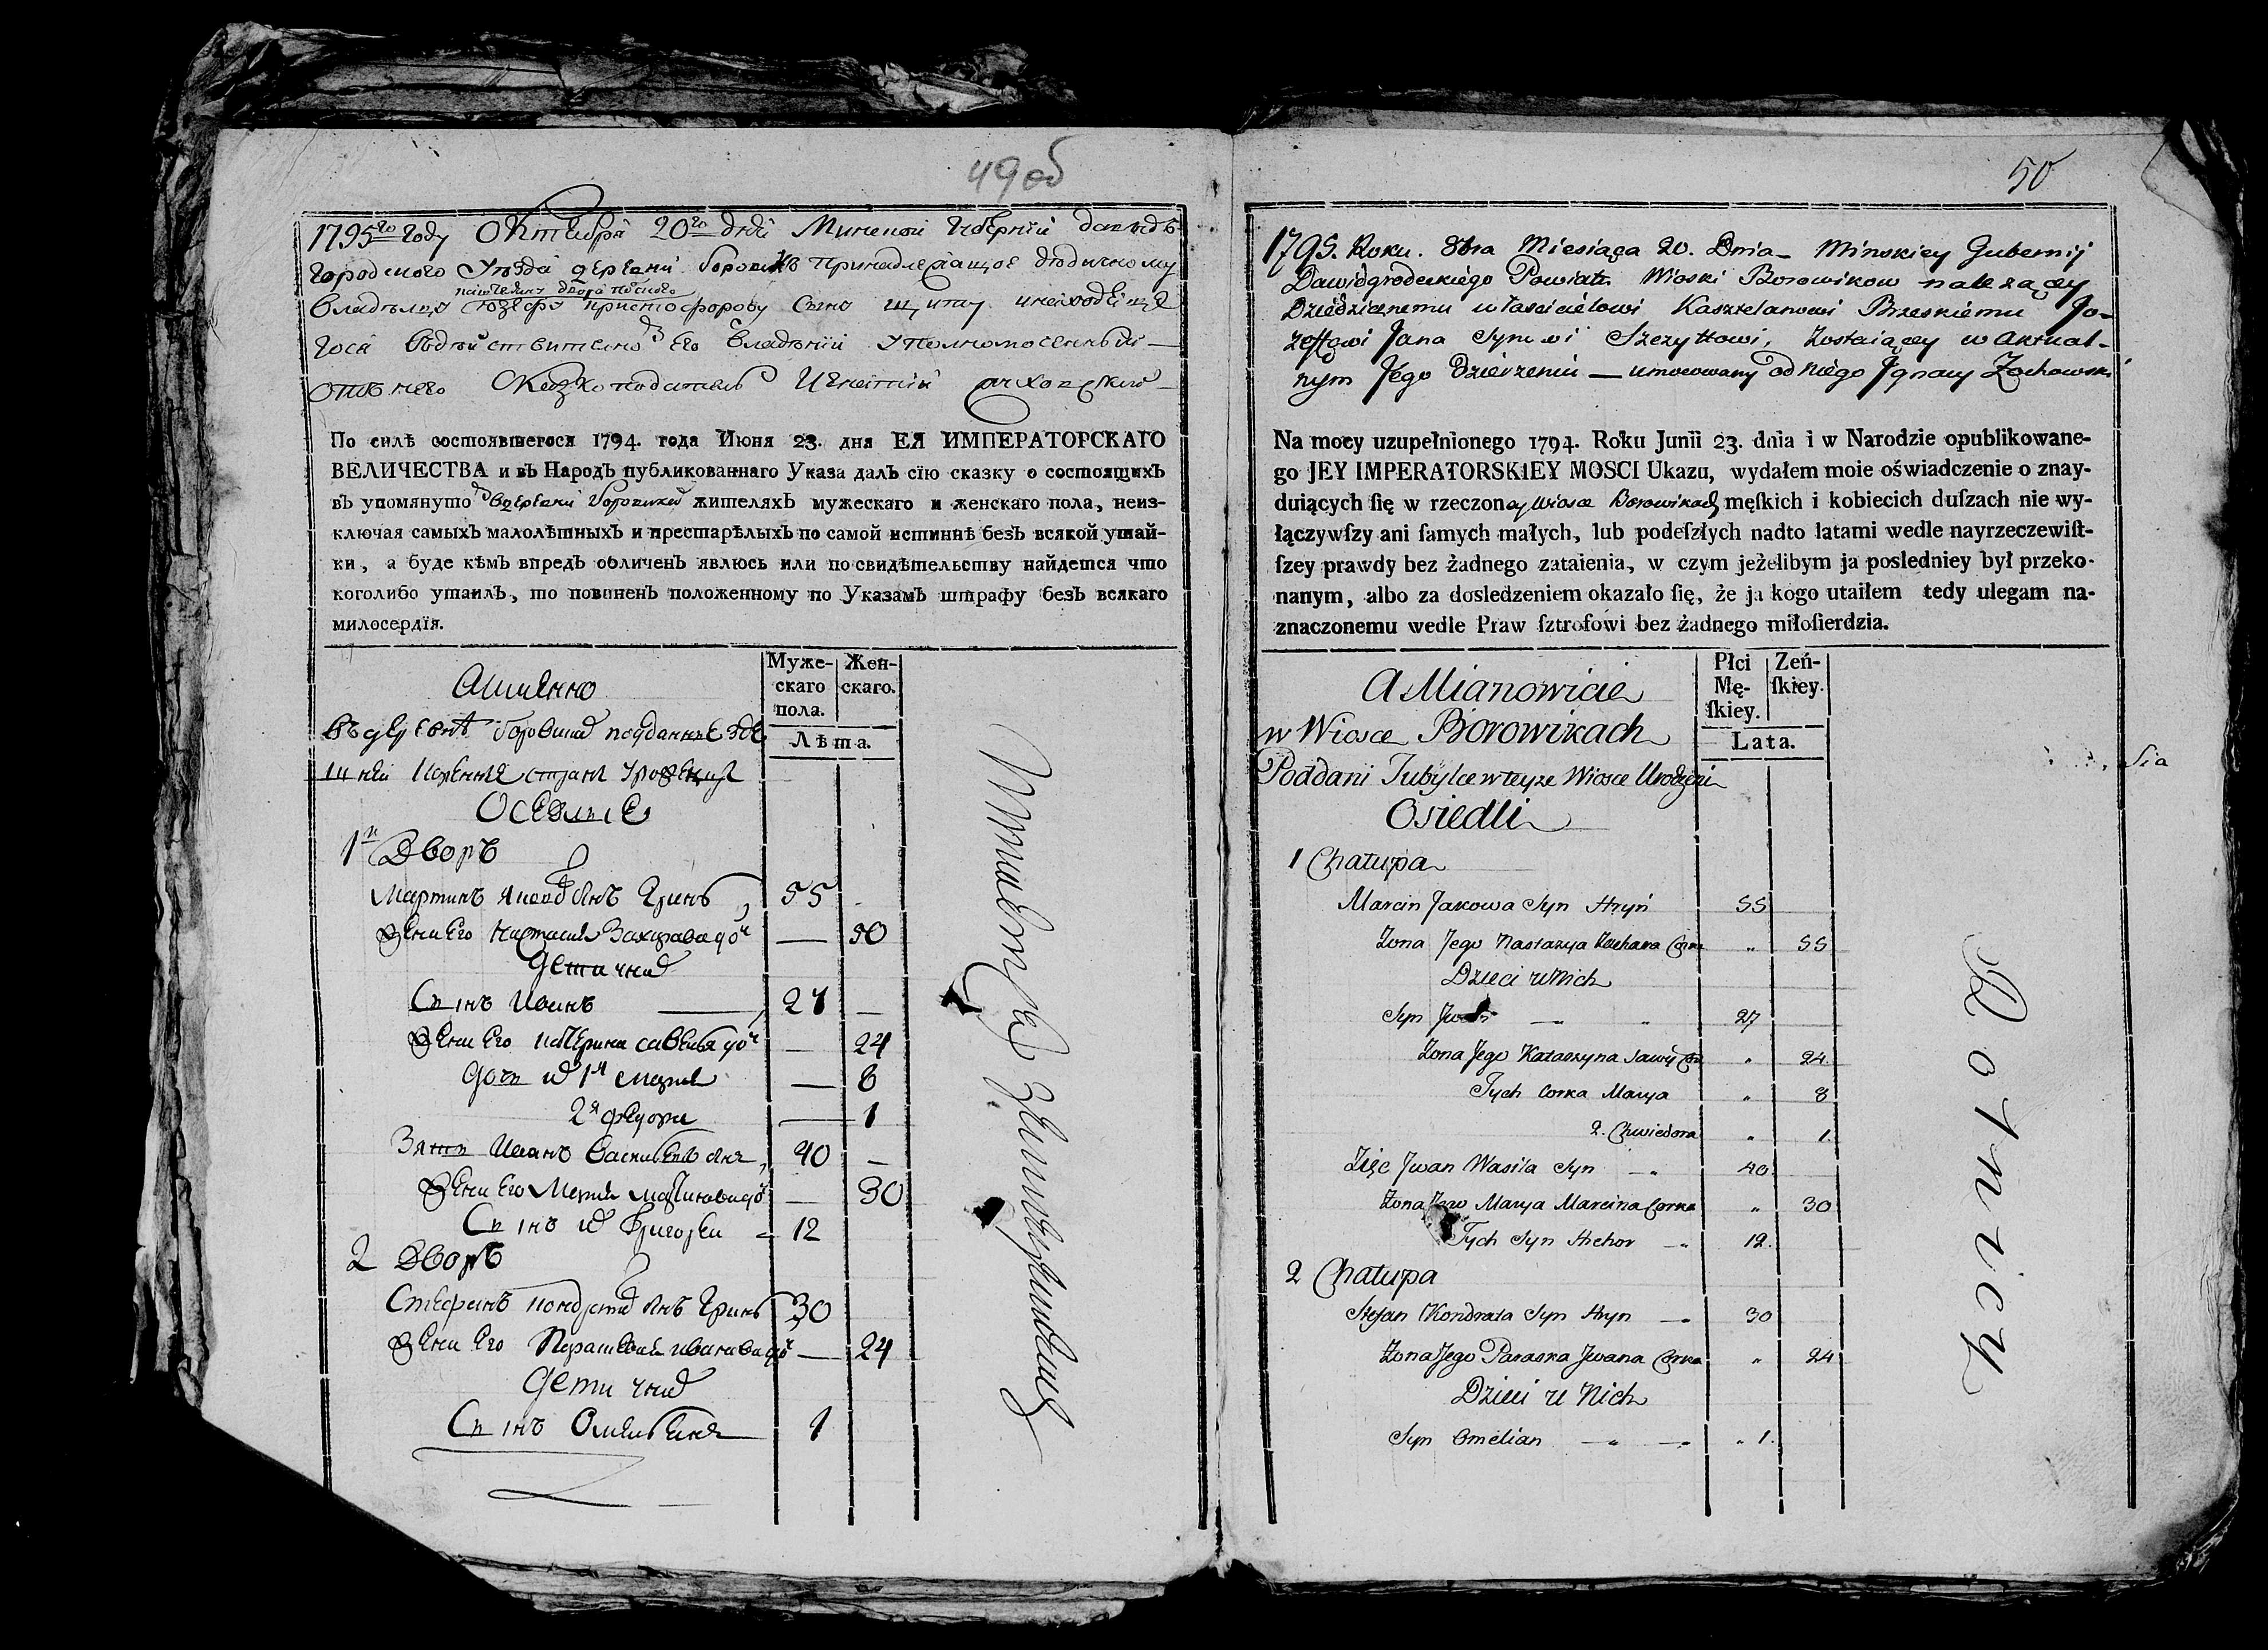 49 об
1795го Году Октября 20го дня Минской Губернии давидъ
городского Уезда деревни Боровиковъ принадлежащое дедичному
каштеляну
владельцу Юзефу Христофорову сыну щиту инаходящее
гося въдействительно его владении Уполномоченный
отъ него Сказкоподатель Игнатий
По силѣ состоявшегося 1794. года Июня 23. дня ЕЯ ИМПЕРАТОРСКАГО
ВЕЛИЧЕСТВА и въ Народъ публикованнаго Указа далъ сїю сказку о состоящихъ
въ упомянуто деревни Боровиках жителяхъ мужескаго и женскаго пола, неиз-
ключая самыхъ малолѣтныхъ и престарѣлыхъ по самой истиннѣ безъ всякой утай-
ки, а буде кѣмъ впредъ обличенъ явлюсь или по свидѣтельству найдется что
коголибо утаилъ, то повиненъ положенному по Указамъ штрафу безъ всякаго
милосердїя.
Муже-
скаго
пола.
Жен-
скаго.
Лѣта.
Аимянно
въдеревне Боровиках подданные
Оседлые
1й Дворъ
Мартинъ Яковов Снъ Гринъ 55
Жена Его Настасия Захарова дочъ — 50
Дети них
Сынъ Иванъ 27 —
Жена Его Катерина савельева дочъ — 24
Дочь их 1я Мария — 8
2я федора — 1
Зять Иванъ Васильевъ Снъ 40 —
Жена Его Мария Мартинова дочъ — 30
Сынъ их Григорей 12
2 Дворъ
Стефанъ Кондратов Снъ Гринъ 30
Жена Его Парасковия иванова дочъ — 24
Дети них
Сынъ Омельянъ 1
50
1795. Roku. 8bra Miesiąca 20. Dnia Minskiey Gubernij
Dawidgrodeckiego Powiatu Wioski Borowikow należącey
Dziedzicznemu właścicielowi Kasztelanowi Brzeskiemu Jo-
zeffowi Jana Synowi Szczyttowi, Zostaiącey w aktual-
nym Jego Dzierzeniu — umocowany od niego Jgnacy Zochowski
Na mocy uzupełnionego 1794. Roku Junii 23. dnia i w Narodzie opublikowane-
go JEY IMPERATORSKIEY MOSCI Ukazu, wydałem moie oświadczenie o znay-
duiących ſię w rzeczoney Wiosce Borowikach męſkich i kobiecich duſzach nie wy-
łączywſzy ani ſamych małych, lub podeſzłych nadto latami wedle nayrzeczewiſt-
ſzey prawdy bez żadnego zataienia, w czym jeżelibym ja posledniey był przeko-
nanym, albo za dosledzeniem okazało ſię, że ja kogo utaiłem tedy ulegam na-
znaczonemu wedle Praw ſztrofowi bez żadnego miłoſierdzia.
Płci
Mę-
ſkiey.
Zeń-
ſkiey.
Lata.
A Mianowicie
w Wiosce Borowikach
Poddani Tubylce w teyze Wiosce Urodzeni
Osiedli
1 Chałupa
Marcin Jakowa Syn Hryń 55
Zona Jego Nastazya Zachara Corka " 55
Dzieci u Nich
Syn Jwan — " 27
Zona Jego Katarzyna Sawy Cor " 24
Tych Corka Marya " 8
2. Chwiedora " 1.
Zięć Jwan Wasila Syn — " 40
Zona Jego Marya Marcina Corka " 30
Tych Syn Hrehor — " 12.
2 Chałupa
Stefan Kondrata Syn Hryn — " 30
Zona Jego Paraska Jwana Corka " 24
Dzieci u Nich
Syn Omelian — " — " " 1.
Rotnicy